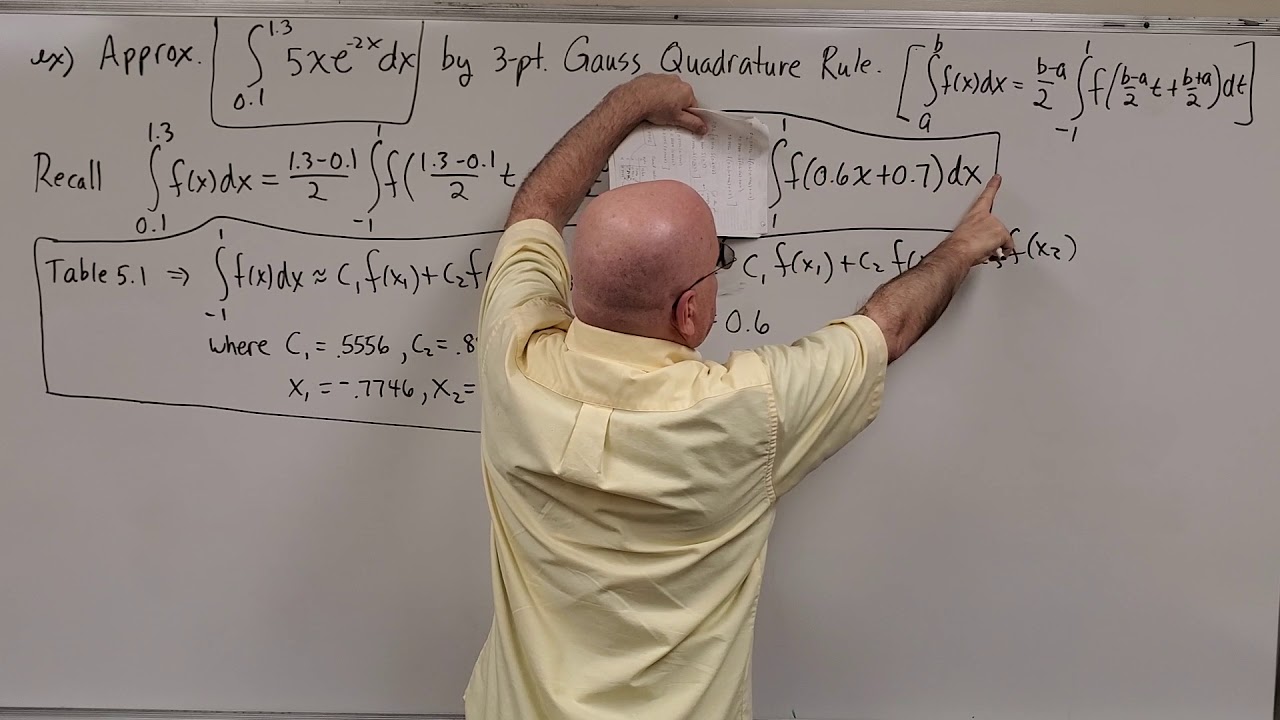 ex) Approx. ∫_{0.1}^{1.3} 5xe^{-2x}dx by 3-pt. Gauss Quadrature Rule. [∫_a^b f(x)dx = \frac{b-a}{2} ∫_{-1}^{1} f(\frac{b-a}{2}t + \frac{b+a}{2})dt]
Recall ∫_{0.1}^{1.3} f(x)dx = \frac{1.3-0.1}{2} ∫_{-1}^{1} f(\frac{1.3-0.1}{2}t ∫^{1} f(0.6x+0.7)dx
Table 5.1 ⇒ ∫_{-1}^{1} f(x)dx ≈ C₁f(x₁)+C₂f( C₁f(x₁)+C₂f( f(x₂)
where C₁ = .5556, C₂ = .8 0.6
x₁ = -.7746, x₂ =